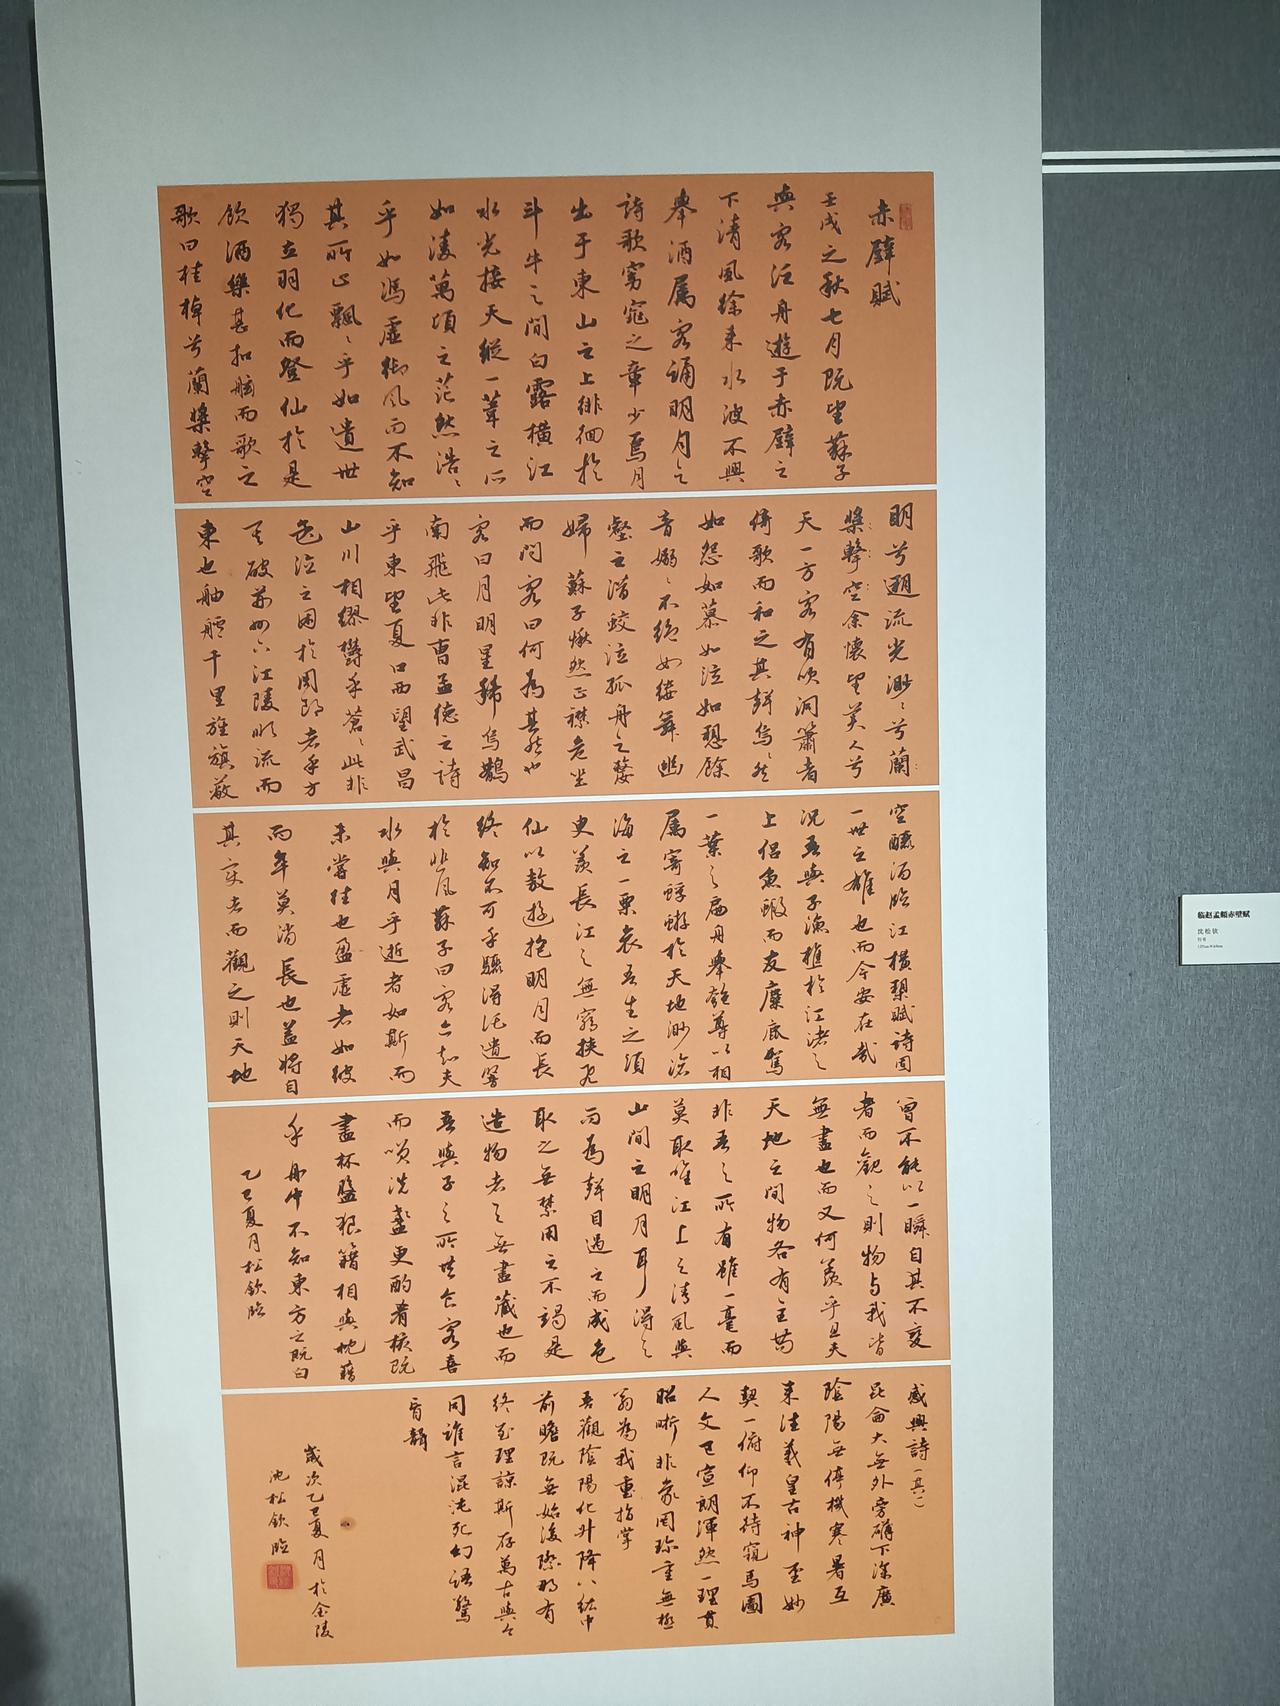 赤壁賦
壬戌之秋七月既望蘇子
與客泛舟遊于赤壁之
下清風徐来水波不興
舉酒属客誦明月之
詩歌窈窕之章少焉月
出于東山之上徘徊於
斗牛之間白露横江
水光接天縱一葦之所
如淩萬頃之茫然浩〻
乎如馮虚御風而不知
其所止飄〻乎如遺世
獨立羽化而登仙於是
飲酒樂甚扣舷而歌之
歌曰桂棹兮蘭槳擊空
明兮遡流光渺〻兮蘭
槳擊空余懷望美人兮
天一方客有吹洞簫者
倚歌而和之其聲烏〻然
如怨如慕如泣如愬餘
音嫋〻不絶如縷舞幽
壑之潜蛟泣孤舟之嫠
婦 蘇子愀然正襟危坐
而問客曰何為其然也
客曰月明星稀烏鵲
南飛此非曹孟德之詩
乎東望夏口西望武昌
山川相繆欝乎蒼〻此非
孟德之困於周郎者乎方
其破荆州下江陵順流而
東也舳艫千里旌旗蔽
空釃酒臨江横槊賦詩固
一世之雄也而今安在哉
況吾與子漁樵於江渚之
上侣魚鰕而友麋鹿駕
一葉之扁舟舉匏尊以相
属寄蜉蝣於天地渺滄
海之一粟哀吾生之須
臾羨長江之無窮挟飛
仙以敖遊抱明月而長
終知不可乎驟得託遺響
於悲風蘇子曰客亦知夫
水與月乎逝者如斯而
未嘗往也盈虚者如彼
而卒莫消長也盖將自
其变者而觀之則天地
曾不能以一瞬自其不变
者而觀之則物与我皆
無盡也而又何羨乎且夫
天地之間物各有主苟
非吾之所有雖一毫而
莫取惟江上之清風與
山間之明月耳得之
而為聲目遇之而成色
取之無禁用之不竭是
造物者之無盡藏也而
吾與子之所共食客喜
而笑洗盞更酌肴核既
盡杯盤狼籍相與枕藉
乎舟中不知東方之既白
乙巳夏月松欽臨
感興詩（其一）
昆侖大無外旁礴下深廣
陰陽無停機寒暑互
来往羲皇古神聖妙
契一俯仰不待窺馬圖
人文已宣朗渾然一理貫
昭晰非象罔珍重無極
翁為我重指掌
吾觀陰陽化升降八紘中
前瞻既無始後際那有
終至理諒斯存萬古與今
同誰言混沌死幻語驚
盲聾
歲次乙巳夏月於金陵
沈松欽臨
临赵孟頫赤壁赋
沈松钦
行书